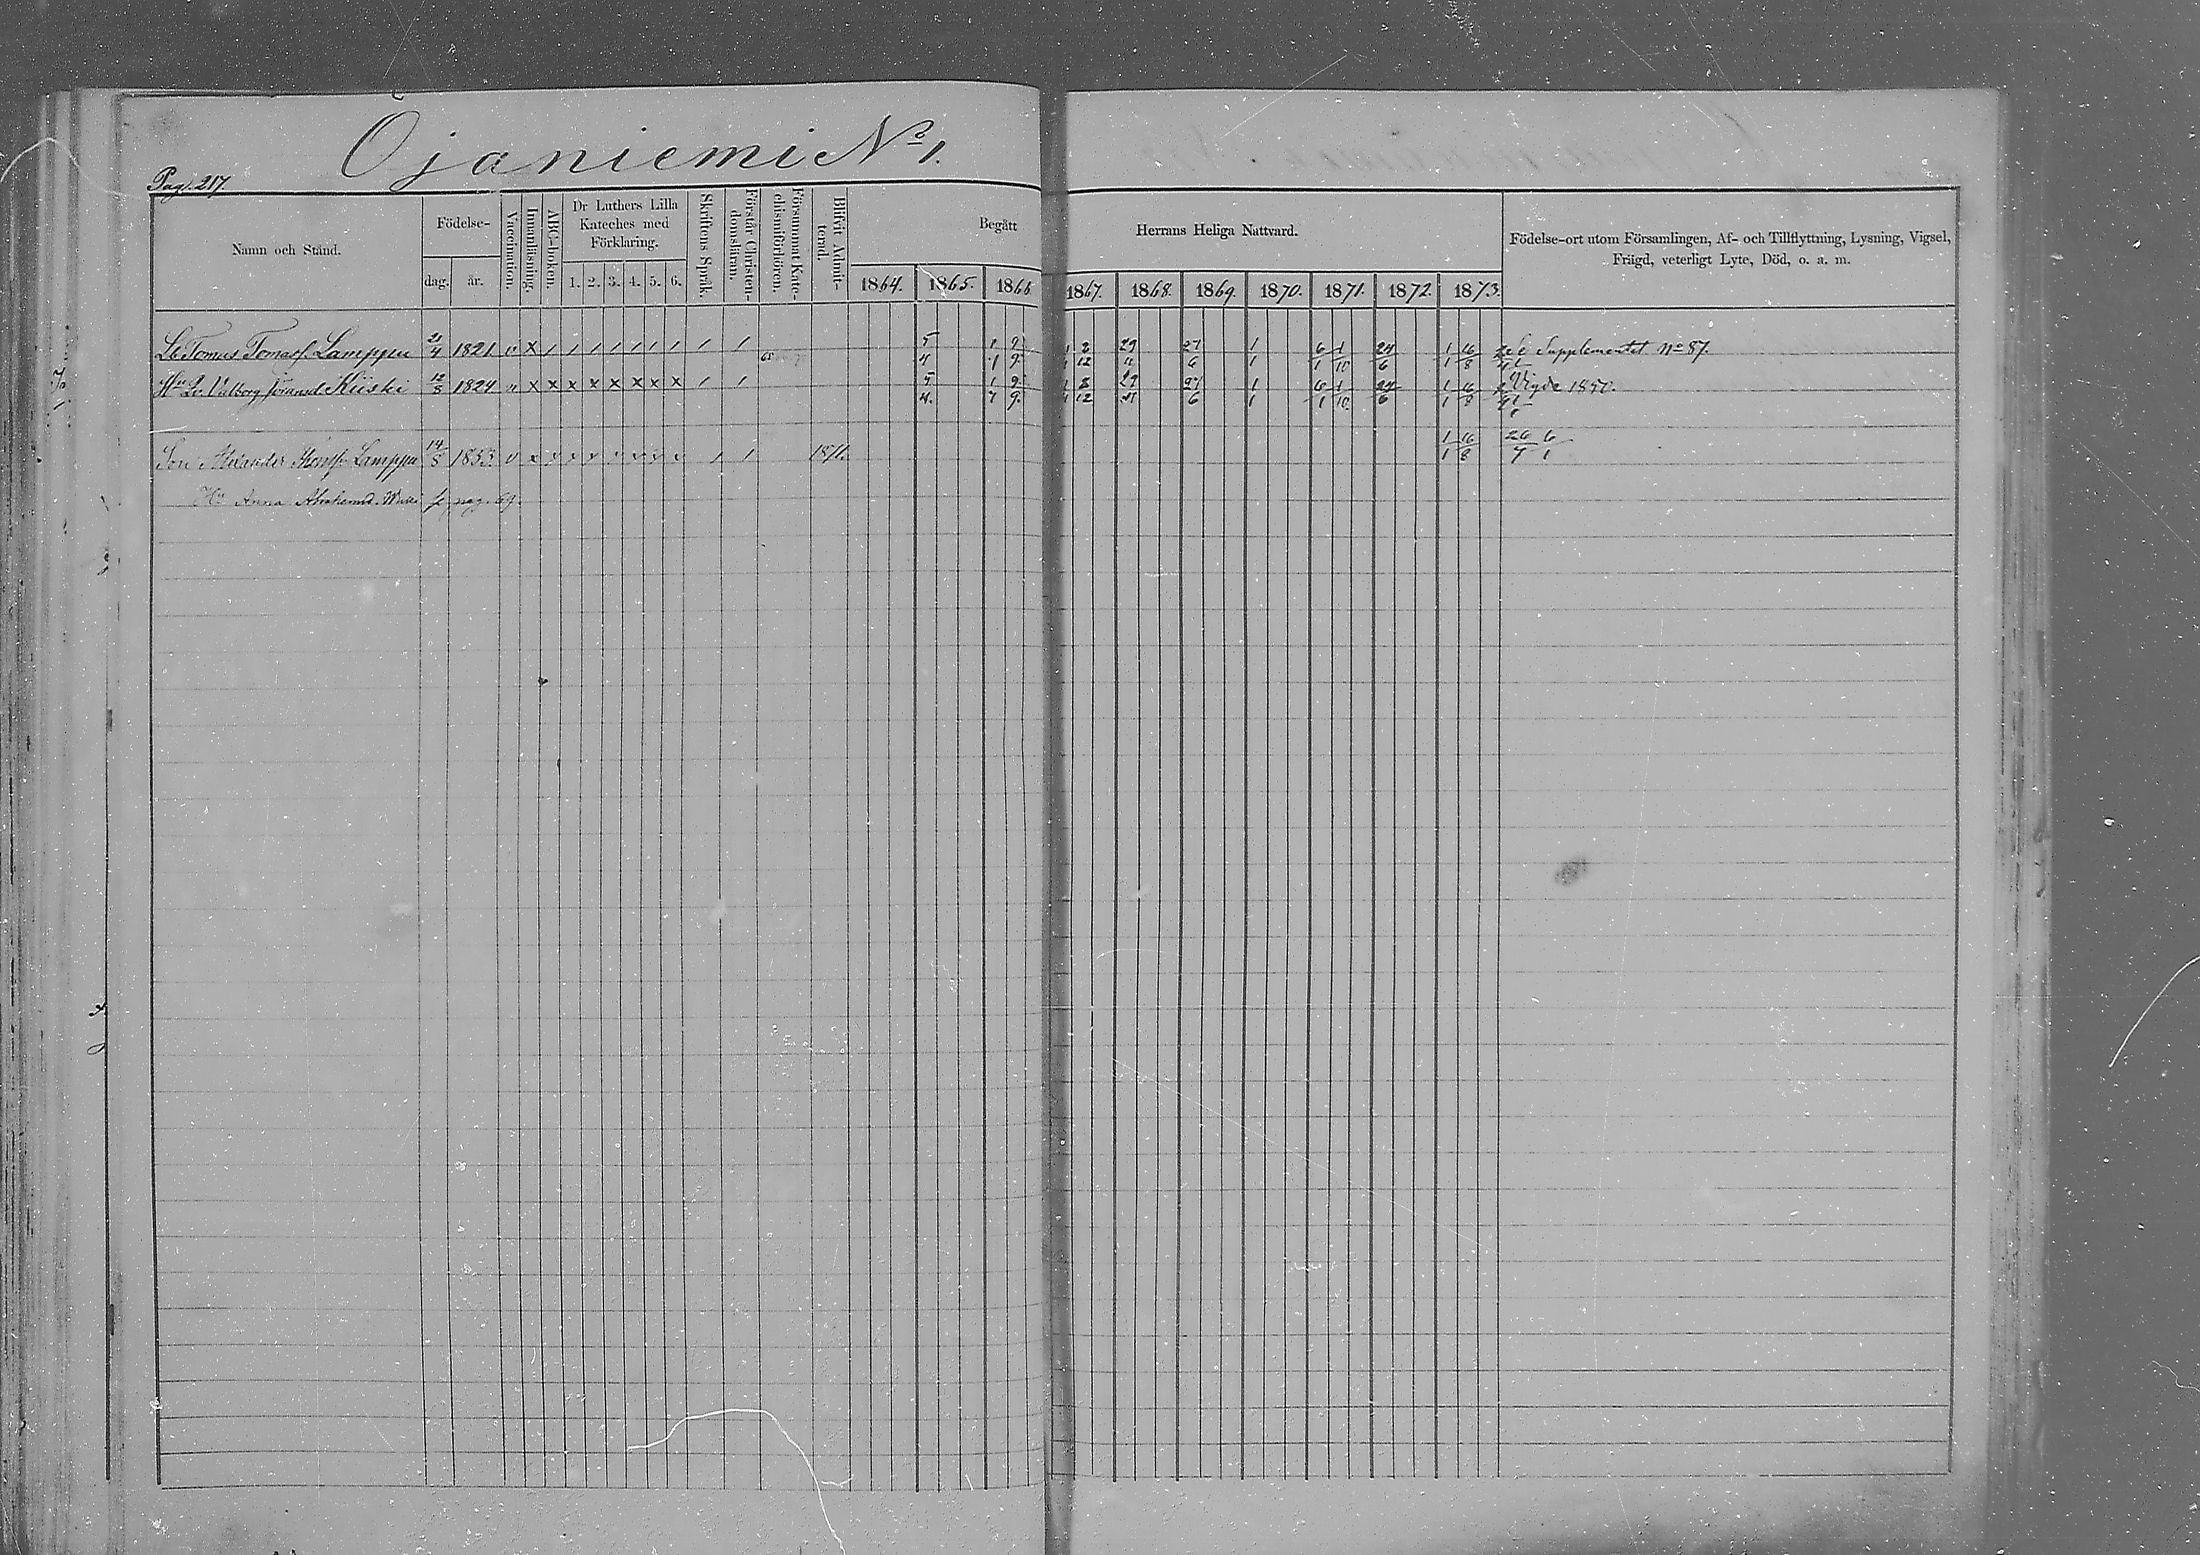 Ojaniemi No 1.
Pag. 217.
Namn och Stånd.
Födelse-
dag.
år.
Vaccination.
Innanläsning.
ABC-boken.
Dr Luthers Lilla
Kateches med
Förklaring.
1. 2. 3. 4. 5. 6.
Skriftens Språk.
Förstår Christen-
domsläran.
Försummat Kate-
chismiförhören.
Blifvit Admit-
terad.
Begått
Herrans Heliga Nattvard.
1864. 1865. 1866. 1867. 1868. 1869. 1870. 1871. 1872. 1873.
Födelse-ort utom Församlingen, Af- och Tillflyttning, Lysning, Vigsel,
Frägd, veterligt Lyte, Död, o. a. m.
Tomas Tomass. Lamppu 21/4 1821 v x / / / / / / / / / 5/4 1/1 9/9 1/1 2/12 29/4 27/6 1/1 6/1 1/10 24/6 1/1 16/8 Se Supplementet No 87.
Hu Valborg Kiiski 12/8 1824 v x x x x x x x x / / 5/4 1/1 9/9 1/1 2/12 29/4 27/6 1/1 6/1 1/10 24/6 1/1 16/8 Vigde 1850.
Son Alexander Lamppu 14/5 1853 v x 1871. 1/1 16/8 26/7 6/1
Hu Anna Abrahamsd. se pag. 69.